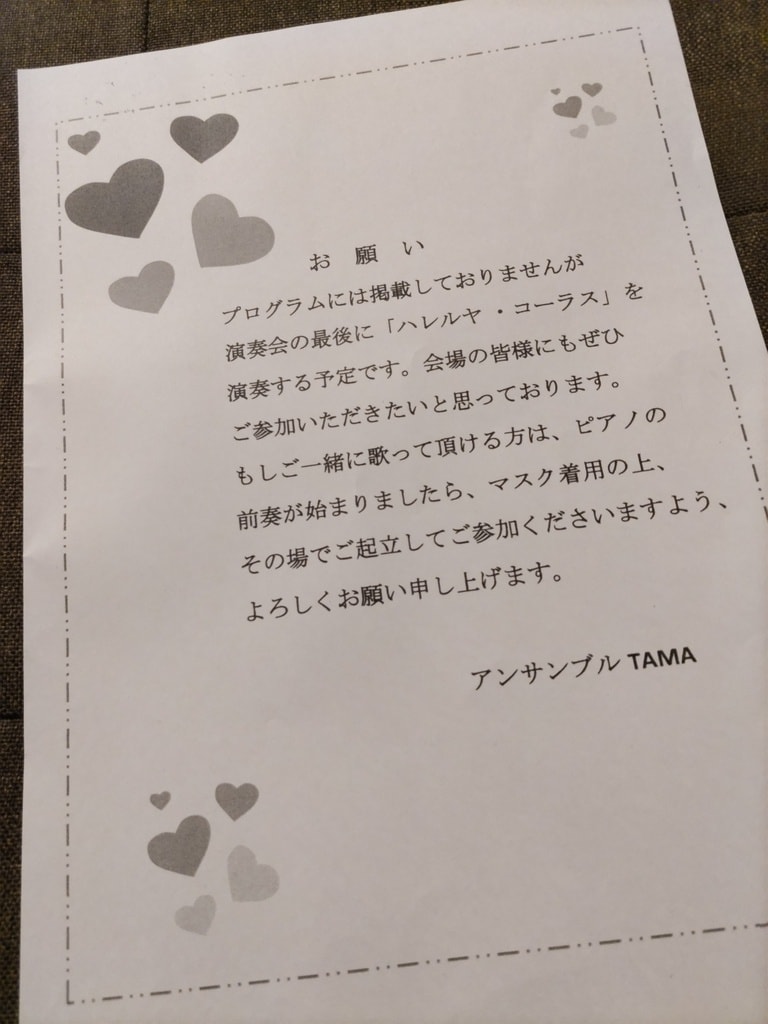 お 願 い
プログラムには掲載しておりませんが
演奏会の最後に「ハレルヤ・コーラス」を
演奏する予定です。会場の皆様にもぜひ
ご参加いただきたいと思っております。
もしご一緒に歌って頂ける方は、ピアノの
前奏が始まりましたら、マスク着用の上、
その場でご起立してご参加くださいますよう、
よろしくお願い申し上げます。
アンサンブル TAMA